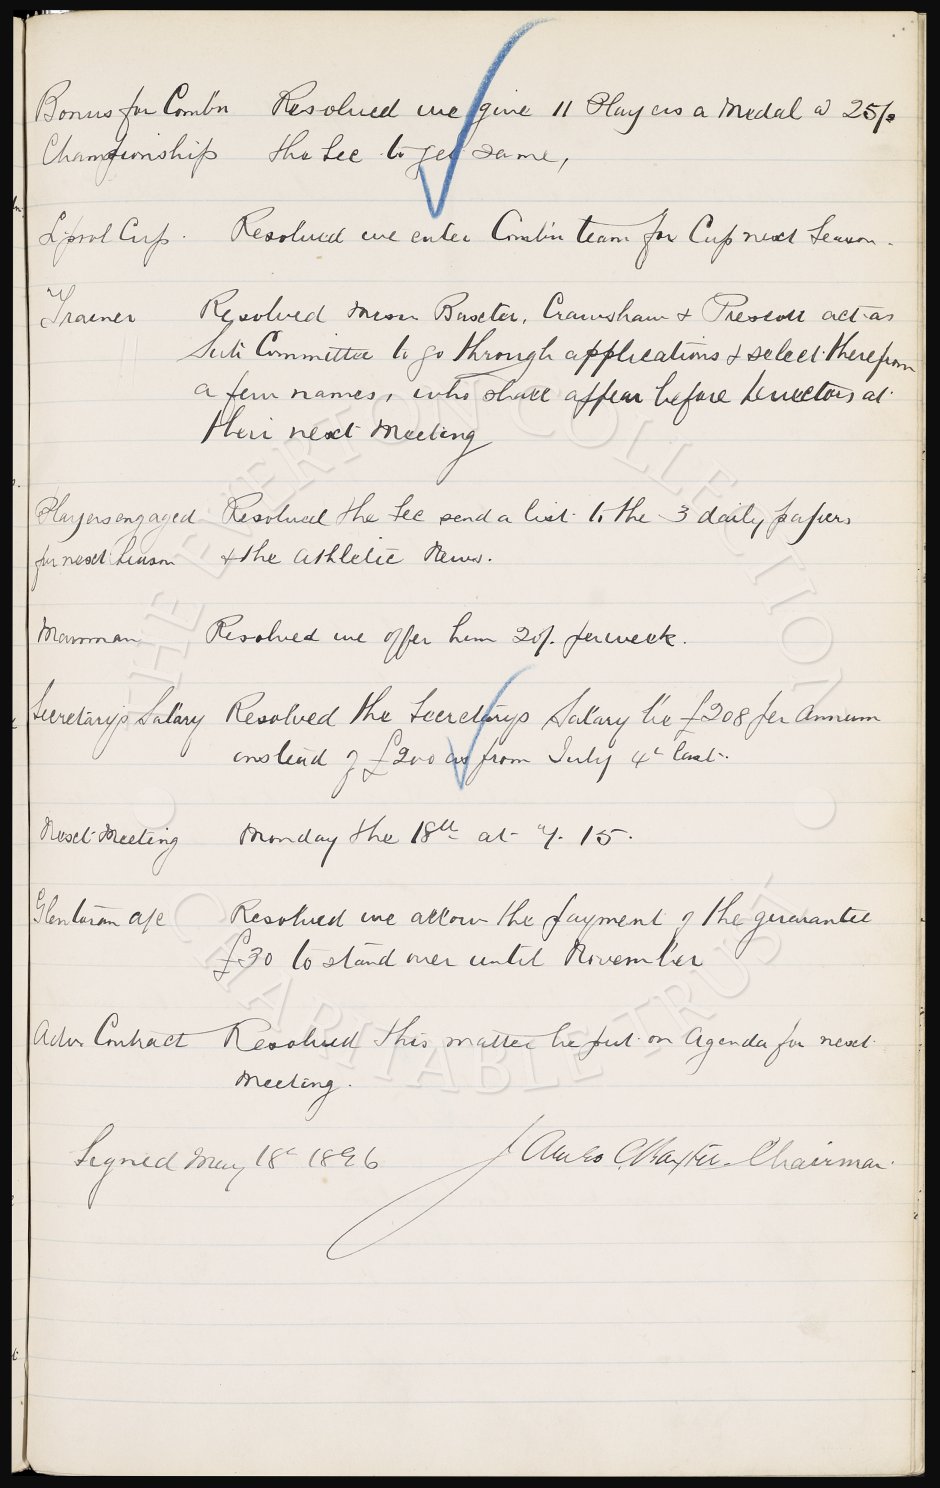 Bonus for Comb'n Resolved we give 11 Players a Medal @ 25/-
Championship the Sec to get same,
L'pool Cup. Resolved we enter Comb'n team for Cup next Season.
Trainer Resolved Messrs Baxter, Crawshaw & Prescott act as
Sub Committee to go through applications & select therefrom
a few names, who shall appear before Directors at
their next Meeting
Players engaged Resolved the Sec send a list to the 3 daily papers
for next Season & the Athletic News.
Resolved we offer him 20/- per week.
Secretary's Salary Resolved the Secretarys Salary be £208 per Annum
instead of £200 as from July 4th last.
Next Meeting Monday the 18th at 7.15.
Glentoran a/c Resolved we allow the payment of the guarantee
£30 to stand over until November
Adv. Contract Resolved this matter be put on Agenda for next
Meeting.
Signed May 18th 1896 James C Baxter Chairman.
THE EVERTON COLLECTION
CHARITABLE TRUST